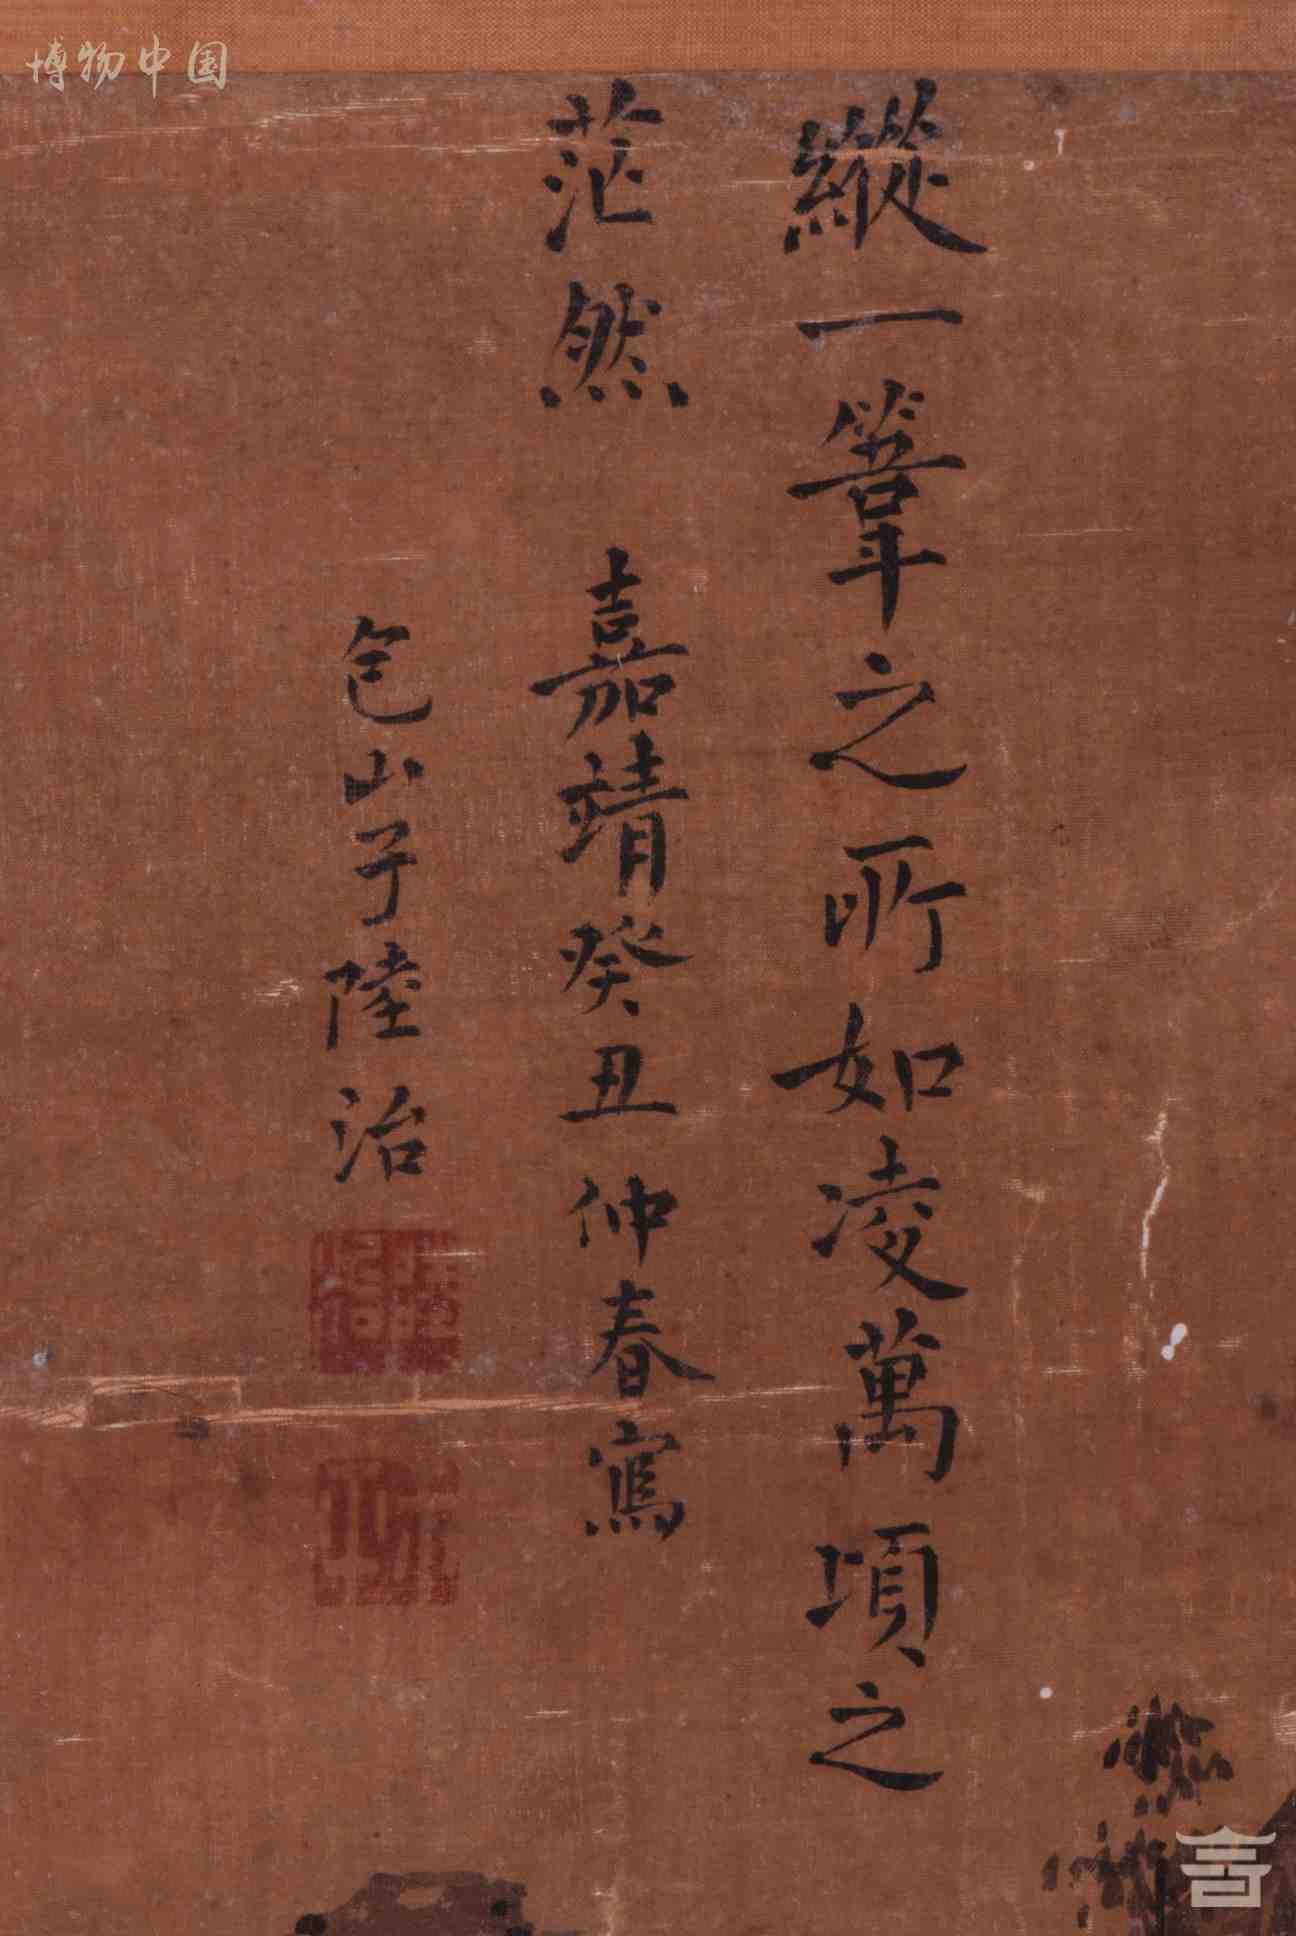 博物中国
縱一葦之所如凌萬頃之
茫然 嘉靖癸丑仲春寫
包山子陸治